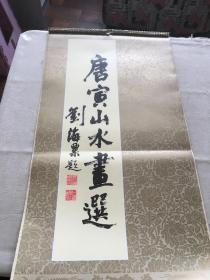 唐寅山水畫選
劉海粟題